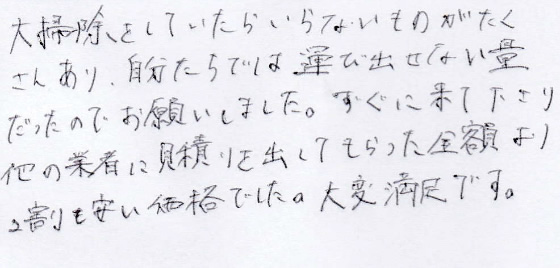 大掃除をしていたらいらないものがたく
さんあり、自分たちでは運び出せない量
だったのでお願いしました。すぐに来て下さり
他の業者に見積りを出してもらった金額より
2割も安い価格でした。大変満足です。